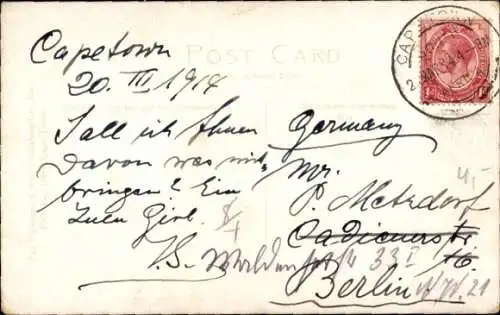 POST CARD
Capetown
20. III 1914
Soll ich Ihnen
davon was mit-
bringen? Ein
Zulu Girl.
Germany
Mr.
P. Metzdorf
Cadienerstr
16
33 I
Berlin
N.W. 21
4,-
CAPE TOWN